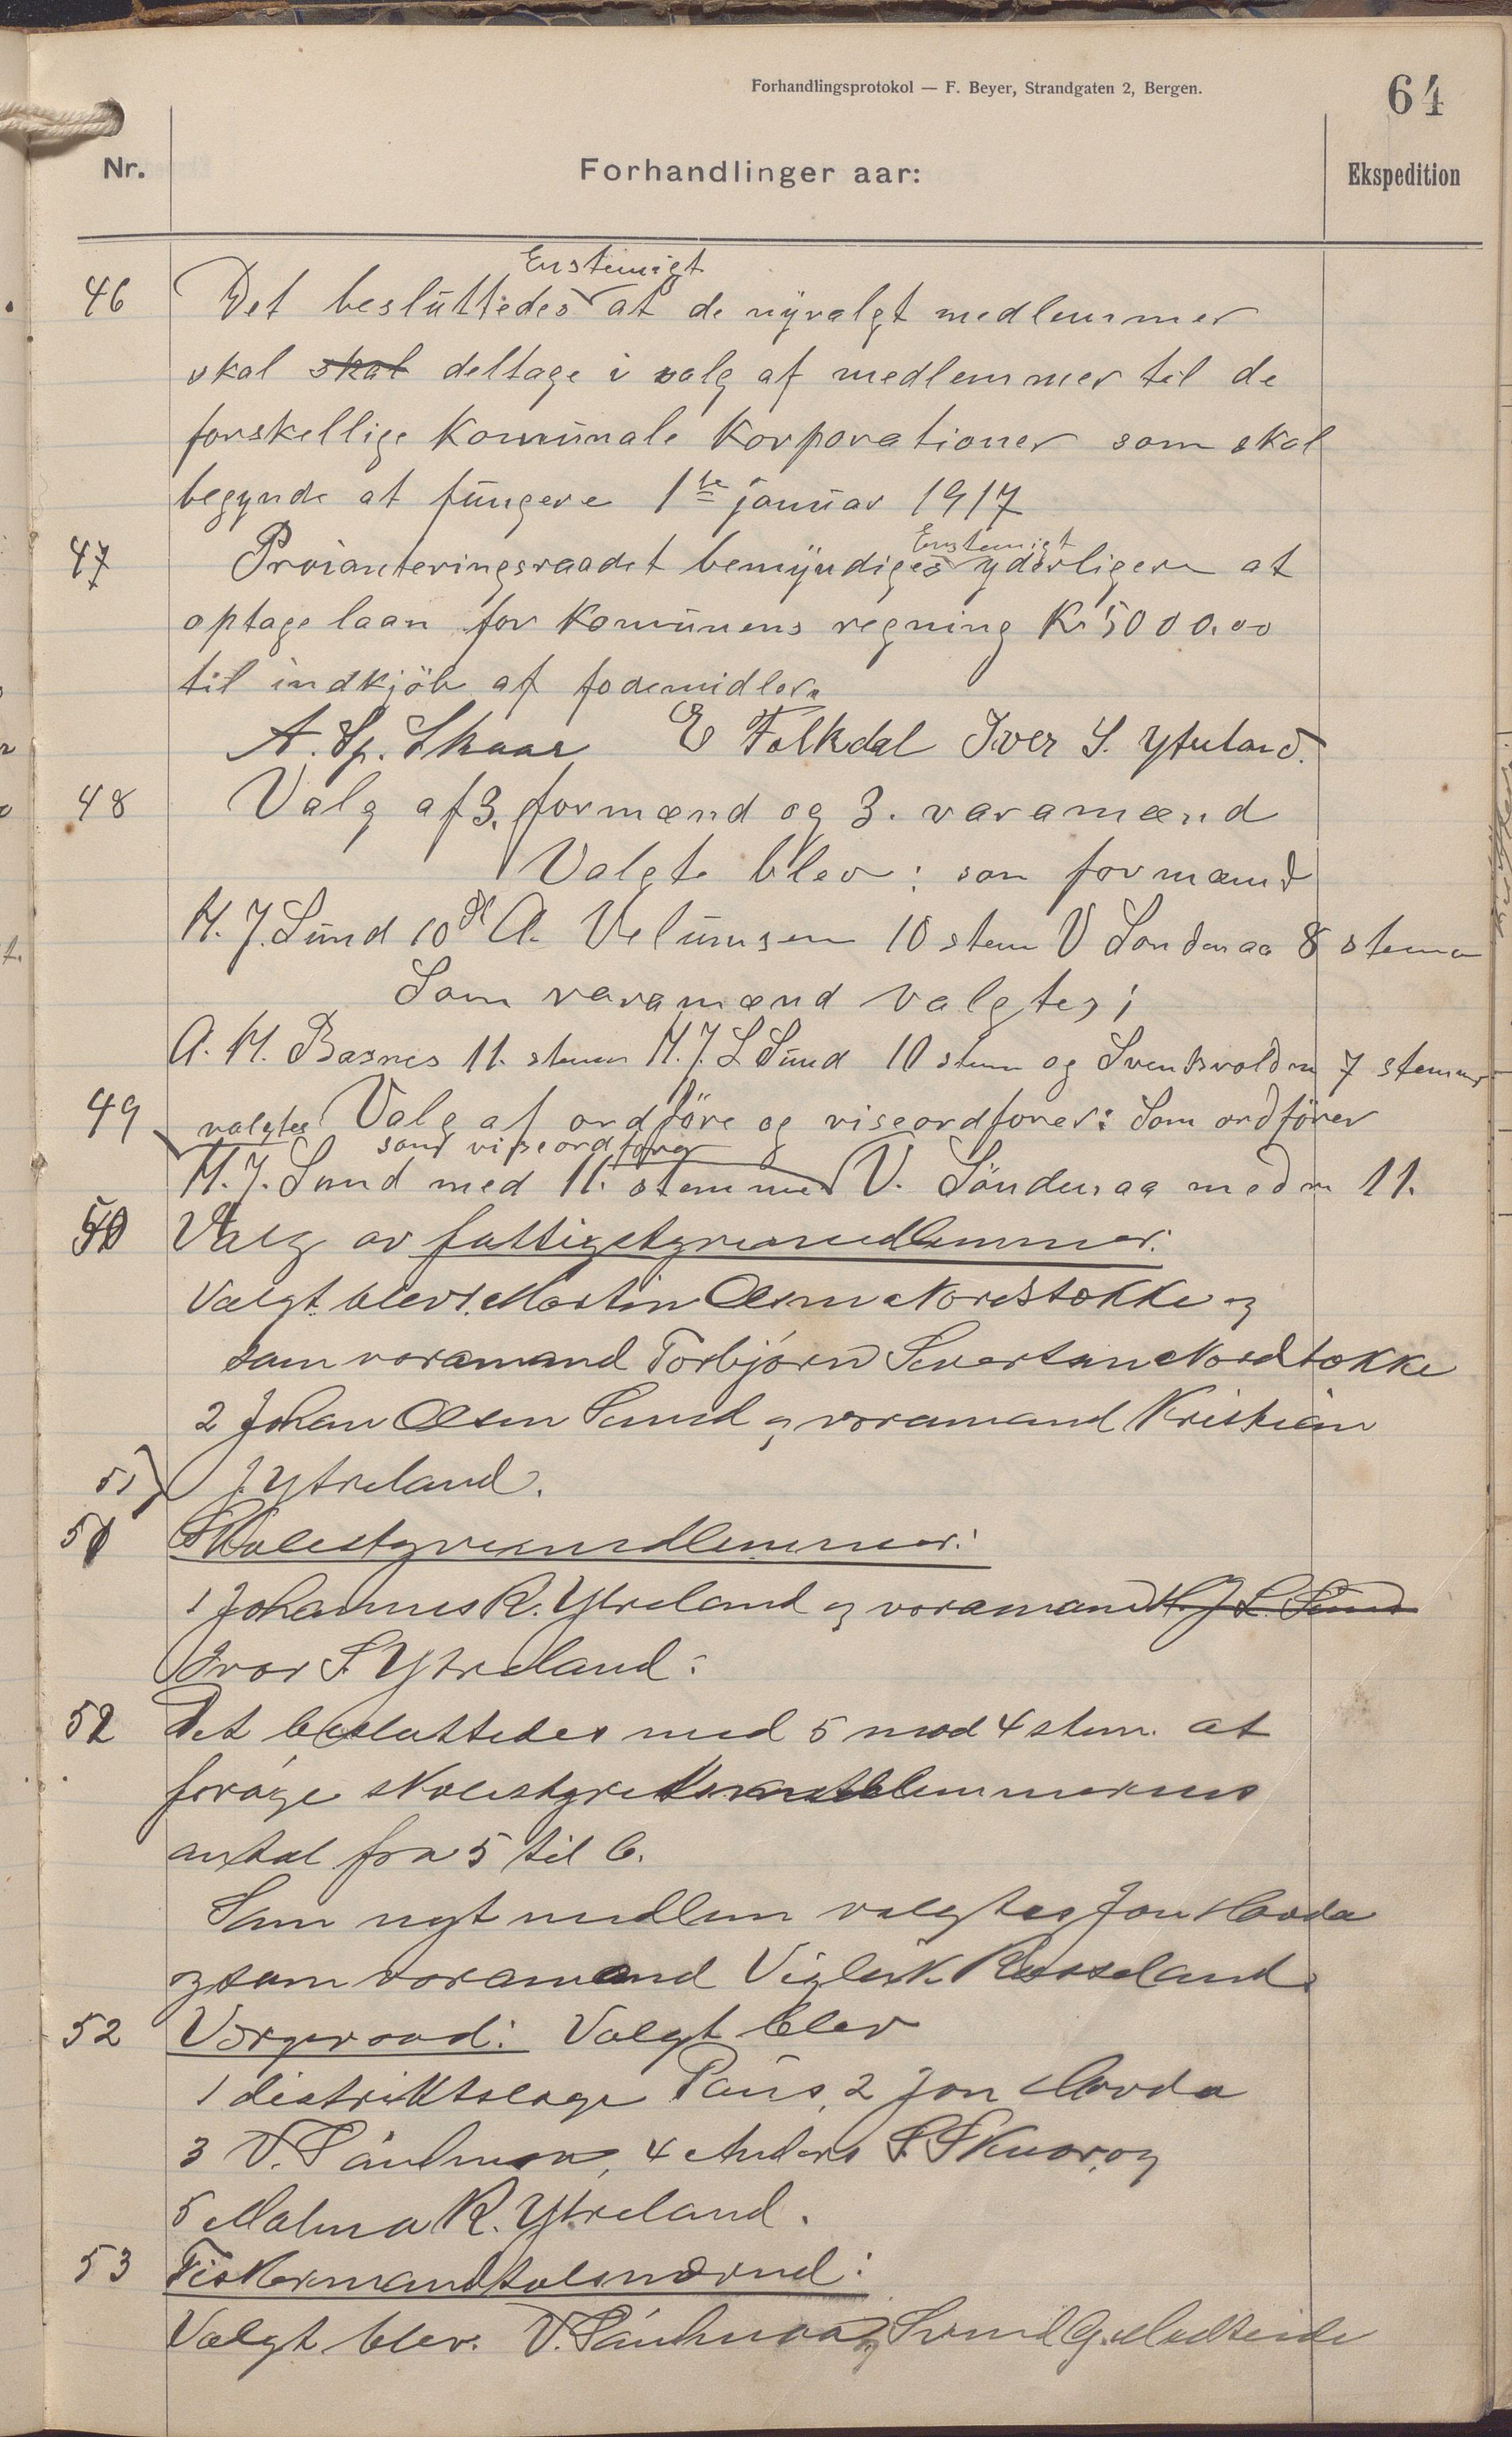 Forhandlingsprotokol — F. Beyer, Strandgaten 2, Bergen.
64
Nr.
Forhandlinger aar:
Ekspedition
Enstemigt
46 Det besluttedes at de nyvalgt medlemmer
skal skal deltage i valg af medlemmer til de
forskellige Komunale Korporationer som skal
begynde at fungere 1ste januar 1917
Enstemigt
47 Proianteringsraadet bemyndiges yderligere at
optage laan for Komunens regning Kr 5000.00
til indkjöb af fødemidler.
A. Sj. Skaar E Folkdal Iver S. Ytreland.
48 Valg af 3. formænd og 3. varamænd
Valgte blev: som formænd
H. J. Sund 10 st A. 10 stem V Søndenaa 8 stem
Som varamænd valgtes;
A. H. Basnes 11. stem H. J. L Sund 10 stem og 7 stemmer
49 valgtes Valg af ordföre og viseordfører: Som ordfører
som viseordfører
H. J. Sund med 11. stemmer V. Söndenaa med 11.
50 Valg av fattigstyremedlemmer:
Valgt blev 1. Martin Olsen Nordstøkke og
som varamand Torbjørn Severtsen Nordtøkke
2 Johan Olsen Sund og varamand Kristian
51) J. Ytreland.
51 Skolestyremedlemmer:
1 Johannes R. Ytreland og varamand H. J. L. Sund
Ivar S. Ytreland:
52 Det besluttedes med 5 mod 4 stem. at
forøge skolestyrets medlemmernes
antal fra 5 til 6.
Som nyt medlem valgtes Jon Hovda
og som varamand Viglik Rosseland.
52 Vergeraad: Valgt blev
1 distriktslæge Paus, 2 Jon Hovda
3 V. Søndenaa, 4 Anders S. Skaar, og
5 Malena R. Ytreland.
53 Fiskermandtalsnævnd:
Valgt blev. V. Søndenaa og